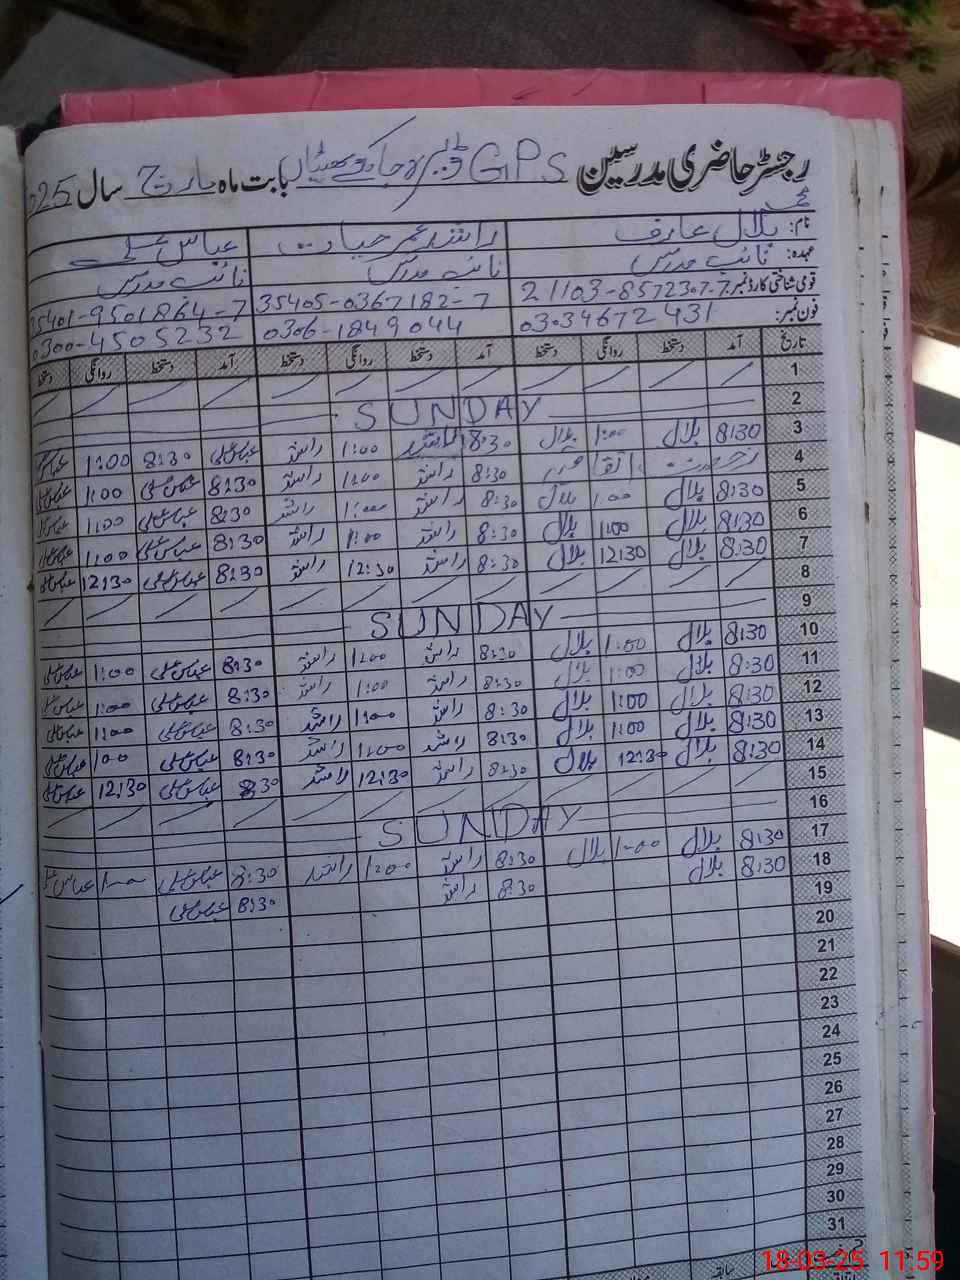 رجسٹر حاضری مدرسین GPS ڈیرہ جاکو بھٹیاں بابت ماہ مارچ سال 025
نام: محمد بلال عارف راشد عمر حیات عباس علی
عہدہ: نائب مدرس نائب مدرس نائب مدرس
قومی شناختی کارڈ نمبر: 21103-8572307-7 35405-0367182-7 35401-9501864-7
فون نمبر: 03034672431 0306-1849044 0300-4505232
تاریخ آمد دستخط روانگی دستخط آمد دستخط روانگی دستخط آمد دستخط روانگی دستخط
1
2 SUNDAY
3 8:30 بلال 1:00 بلال 8:30 راشد 1:00 راشد عباس علی 8:30 1:00 عباس
4 رخصت اتفاقیہ 8:30 راشد 1:00 راشد 8:30 عباس علی 1:00 عباس علی
5 8:30 بلال 1:00 بلال 8:30 راشد 1:00 راشد 8:30 عباس علی 1:00 عباس علی
6 8:30 بلال 1:00 بلال 8:30 راشد 1:00 راشد 8:30 عباس علی 1:00 عباس علی
7 8:30 بلال 12:30 بلال 8:30 راشد 12:30 راشد 8:30 عباس علی 12:30 عباس علی
8
9 SUNDAY
10 8:30 بلال 1:00 بلال 8:30 راشد 1:00 راشد 8:30 عباس علی 1:00 عباس علی
11 8:30 بلال 1:00 بلال 8:30 راشد 1:00 راشد 8:30 عباس علی 1:00 عباس علی
12 8:30 بلال 1:00 بلال 8:30 راشد 1:00 راشد 8:30 عباس علی 1:00 عباس علی
13 8:30 بلال 1:00 بلال 8:30 راشد 1:00 راشد 8:30 عباس علی 1:00 عباس علی
14 8:30 بلال 12:30 بلال 8:30 راشد 12:30 راشد 8:30 عباس علی 12:30 عباس علی
15
16 SUNDAY
17 8:30 بلال 1:00 بلال 8:30 راشد 1:00 راشد 8:30 عباس علی 1:00 عباس علی
18 8:30 بلال 8:30 راشد 8:30 عباس علی
19
20
21
22
23
24
25
26
27
28
29
30
31
18-03-25 11:59